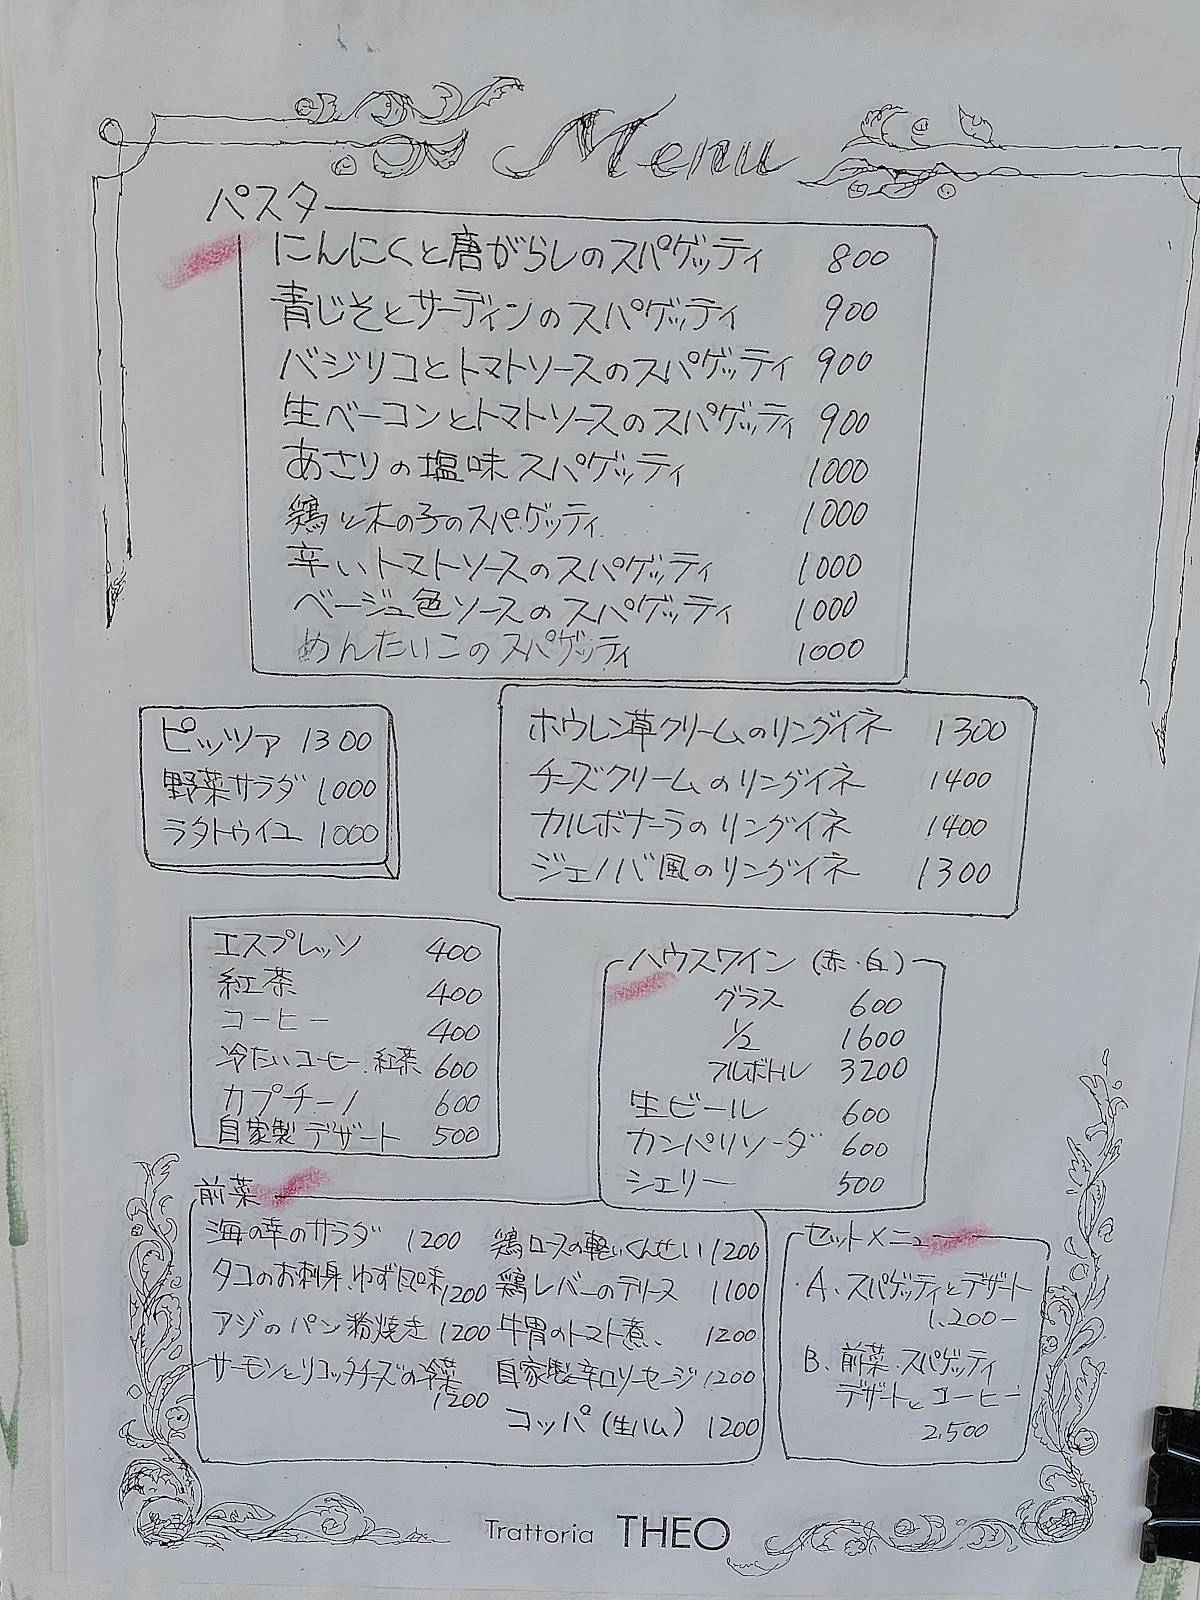 Menu
パスタ
にんにくと唐がらしのスパゲッティ 800
青じそとサーディンのスパゲッティ 900
バジリコとトマトソースのスパゲッティ 900
生ベーコンとトマトソースのスパゲッティ 900
あさりの塩味スパゲッティ 1000
鶏と木の子のスパゲッティ 1000
辛いトマトソースのスパゲッティ 1000
ベージュ色ソースのスパゲッティ 1000
めんたいこのスパゲッティ 1000
ピッツァ 1300
野菜サラダ 1000
ラタトゥイユ 1000
ホウレン草クリームのリングイネ 1300
チーズクリームのリングイネ 1400
カルボナーラのリングイネ 1400
ジェノバ風のリングイネ 1300
エスプレッソ 400
紅茶 400
コーヒー 400
冷たいコーヒー.紅茶 600
カプチーノ 600
自家製デザート 500
ハウスワイン (赤・白)
グラス 600
1/2 1600
フルボトル 3200
生ビール 600
カンパリソーダ 600
シェリー 500
前菜
海の幸のサラダ 1200
タコのお刺身、ゆず風味 1200
アジのパン粉焼き 1200
サーモンとリコッタチーズの冷菜
1200
鶏ロースの軽いくんせい 1200
鶏レバーのテリーヌ 1100
牛胃のトマト煮、 1200
自家製辛口ソーセージ 1200
コッパ (生ハム) 1200
セットメニュー
・A、スパゲッティとデザート
1,200-
B、前菜・スパゲッティ
デザートとコーヒー
2,500
Trattoria THEO